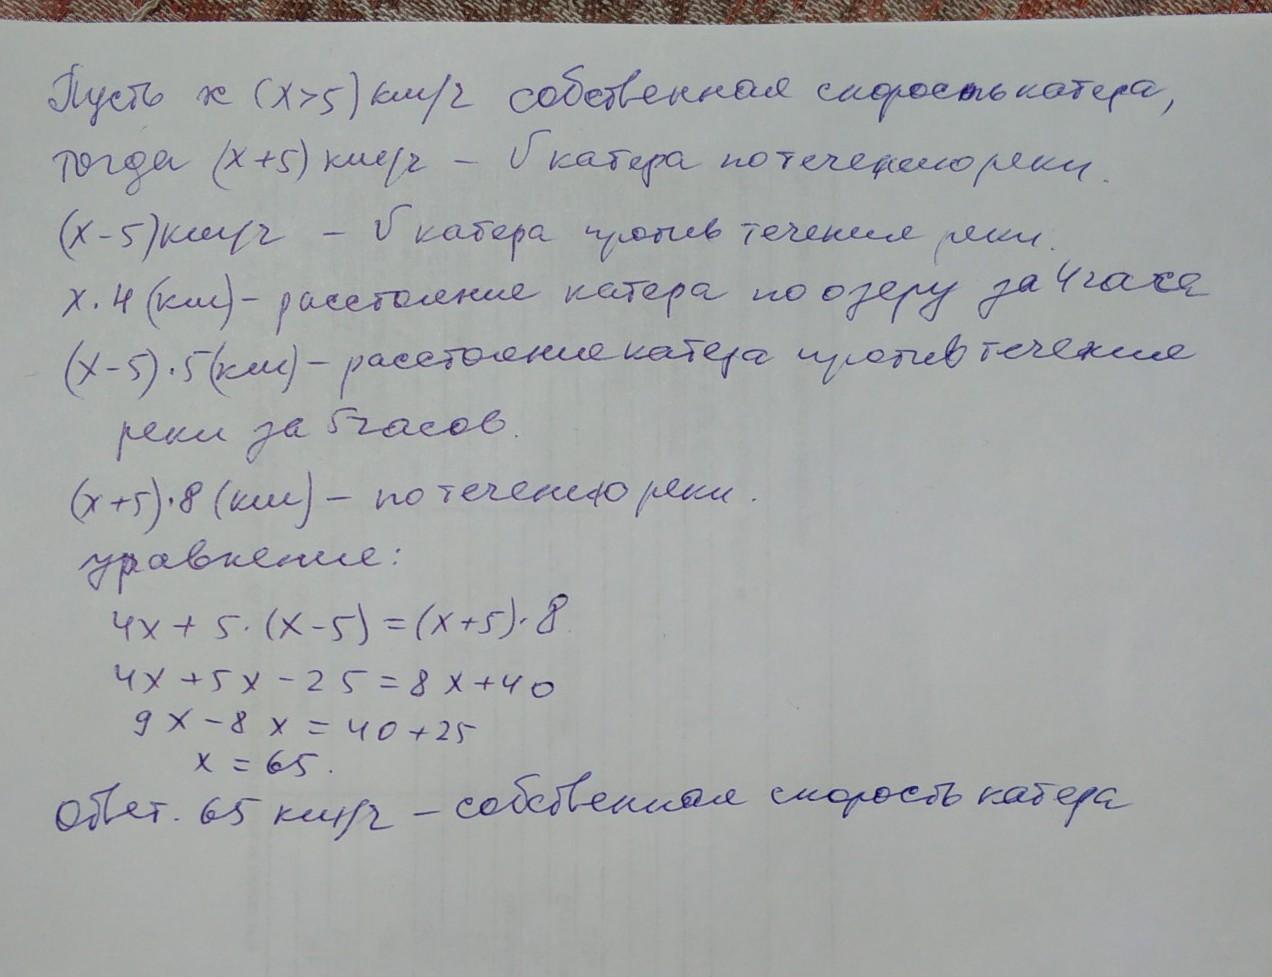 Пусть х (х>5) км/ч собственная скорость катера,
тогда (х+5) км/ч – V катера по течению реки.
(х-5) км/ч – V катера против течения реки.
х·4 (км) – расстояние катера по озеру за 4 часа
(х-5)·5 (км) – расстояние катера против течение
реки за 5 часов.
(х+5)·8 (км) – по течению реки.
уравнение:
4х + 5·(х-5) = (х+5)·8
4х + 5х - 25 = 8х + 40
9х - 8х = 40 + 25
х = 65.
Ответ. 65 км/ч – собственная скорость катера